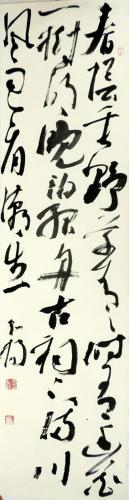 春陰垂野草青青時有幽花
一樹明晚泊孤舟古祠下滿川
風雨看潮生